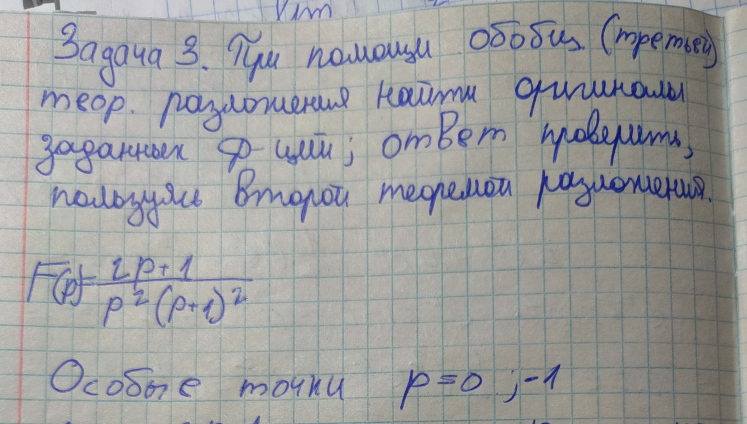 Задача 3. При помощи обобщ. (третьей)
теор. разложения найти оригиналы
заданных ф-ций; ответ проверить,
пользуясь второй теоремой разложения.
F(p)=\frac{2p+1}{p^2(p+1)^2}
Особые точки p=0; -1